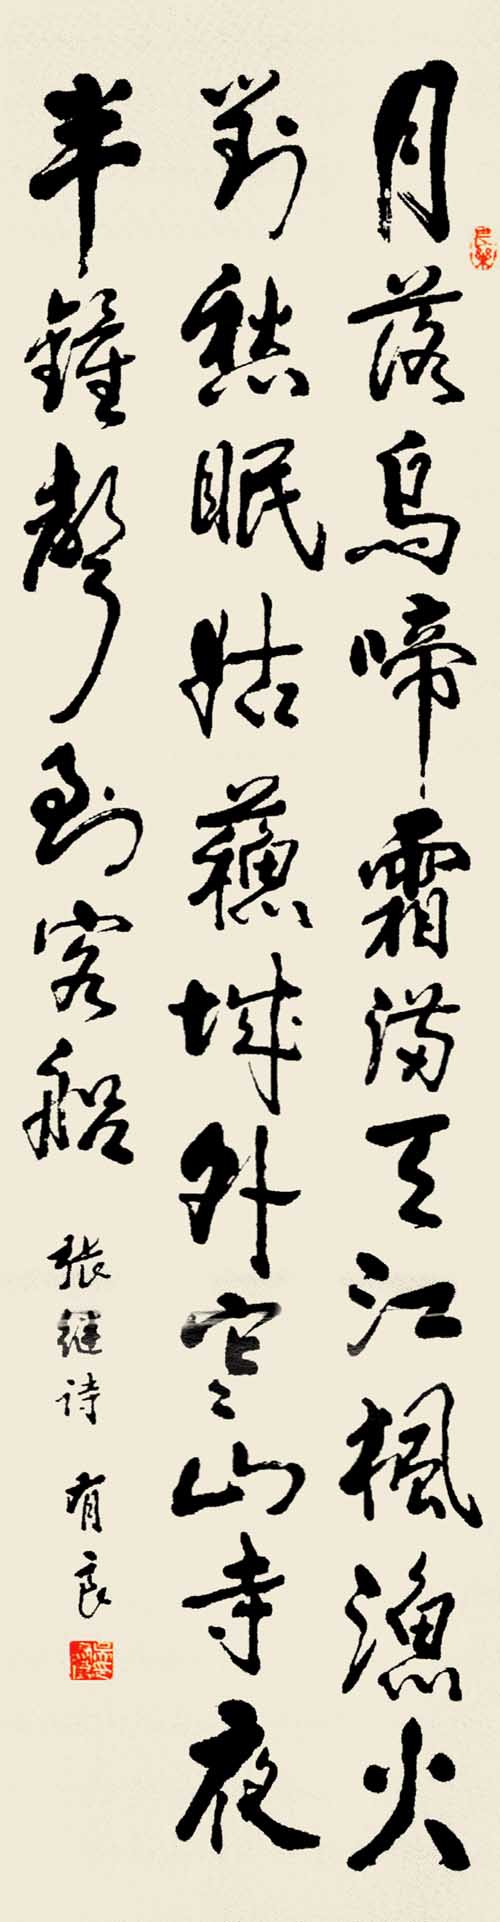 月落烏啼霜满天江楓漁火
對愁眠姑蘇城外寒山寺夜
半鐘聲到客船
张继诗 有良